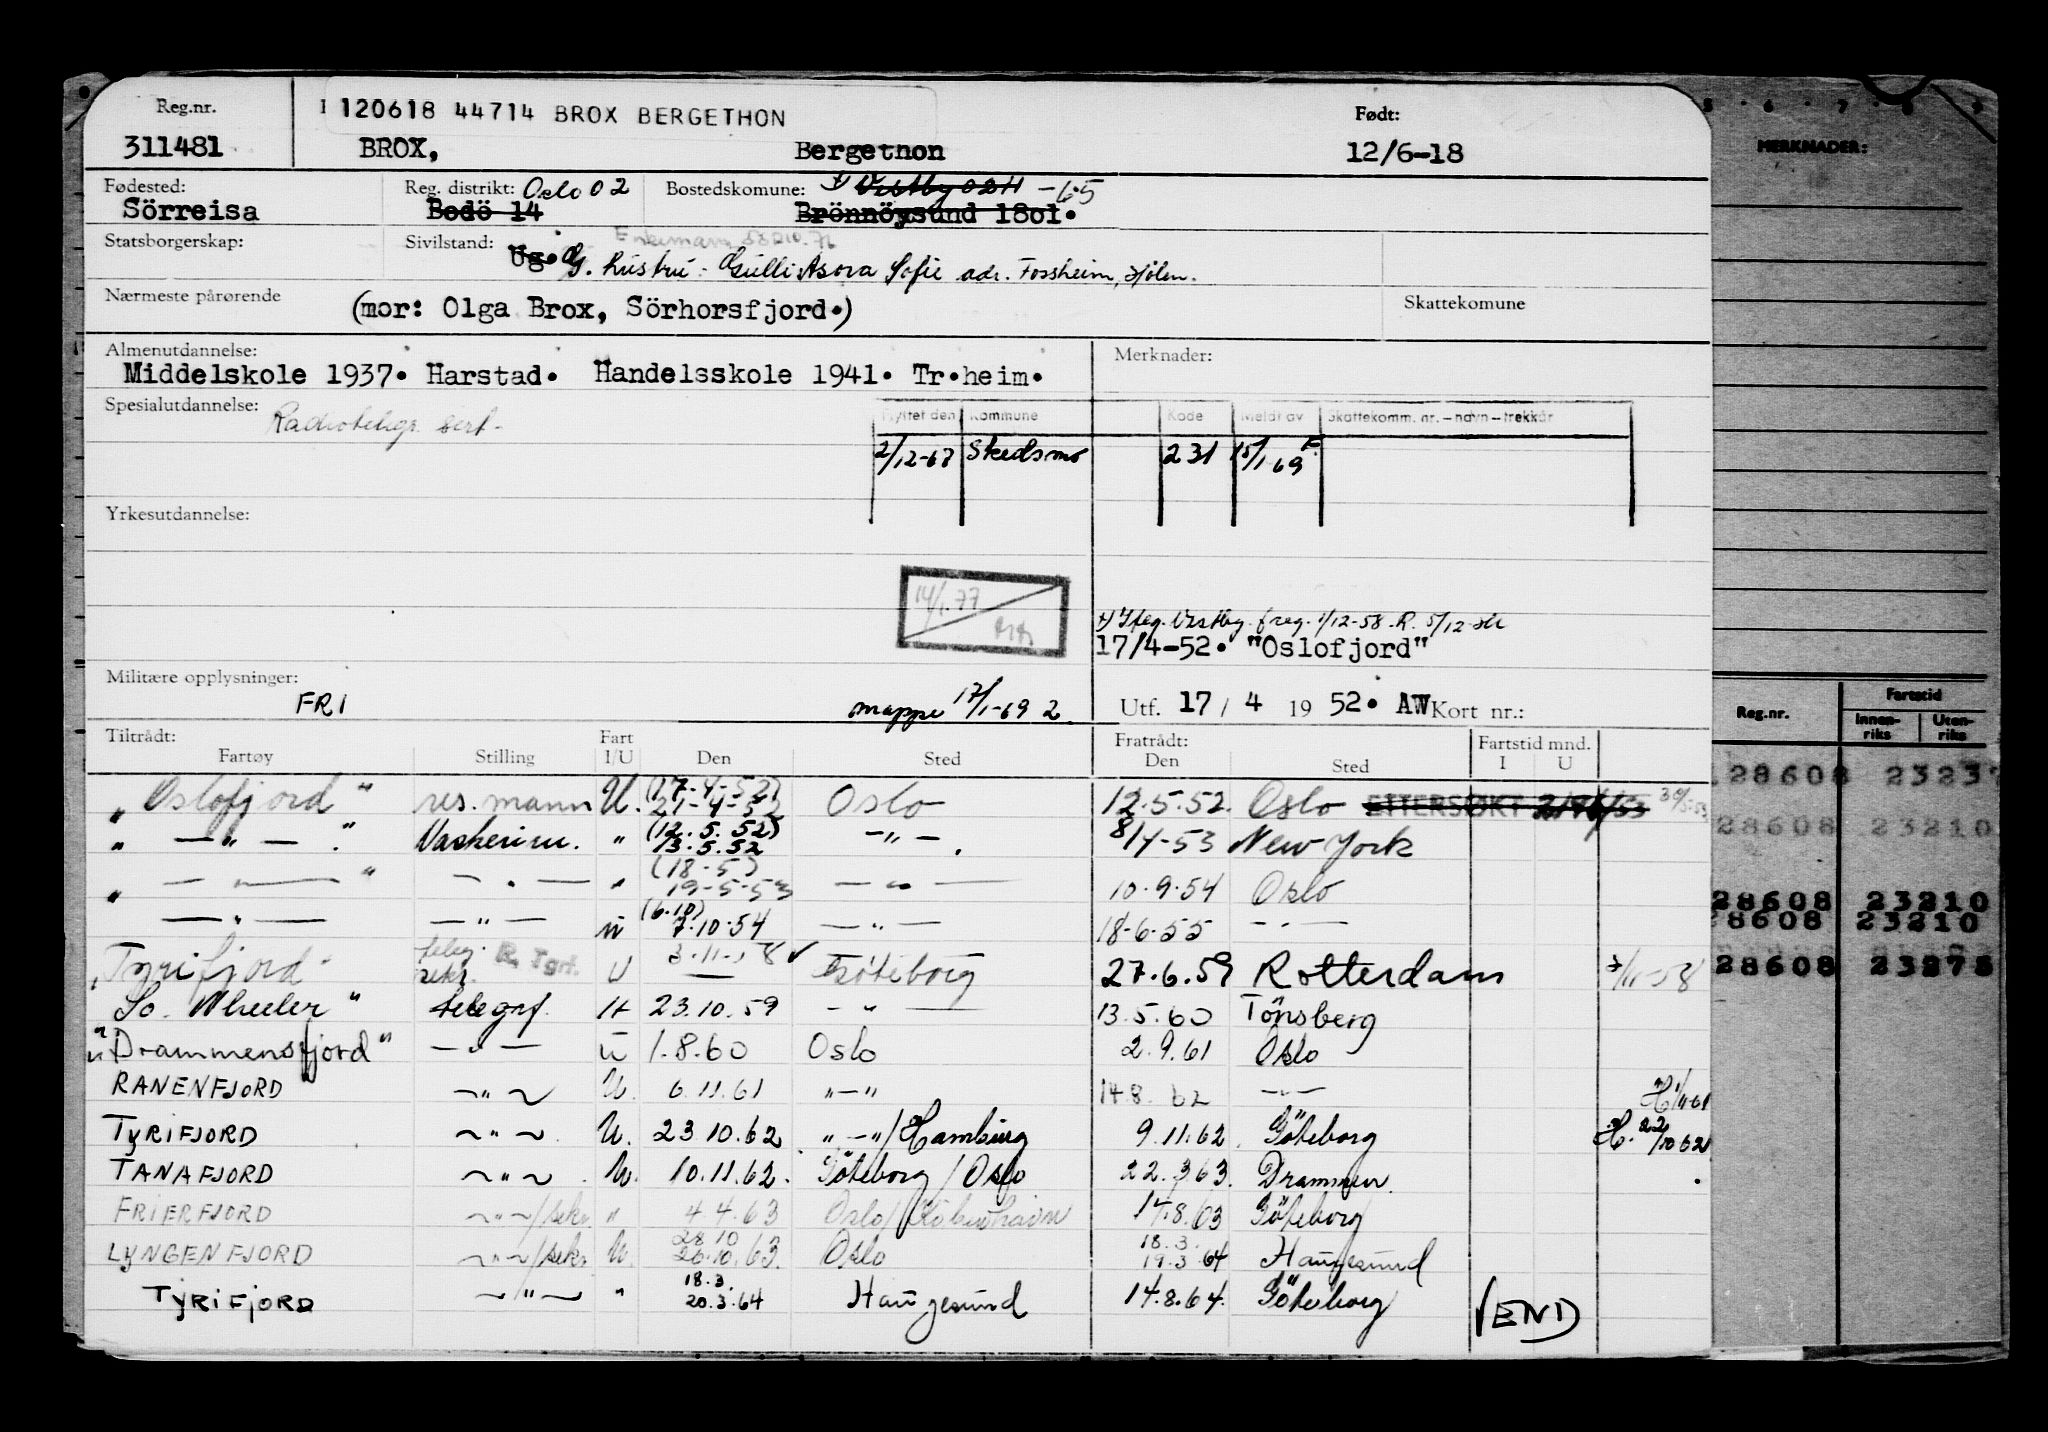 Reg.nr. 120618 44714 BROX BERGETHON Født:
311481 BROX, Bergethon 12/6-18
Fødested: Reg. distrikt: Oslo 02 Bostedskomune: Vestby 0211 -65
Sörreisa Bodö 14 Brönnöysund 1801.
Statsborgerskap: Sivilstand: Enkemann
Ug. G. Hustru: Gulli Asora Sofie adr. Fossheim, Hjölen.
Nærmeste pårørende (mor: Olga Brox, Sörhorsfjord.) Skattekomune
Almenutdannelse: Merknader:
Middelskole 1937. Harstad. Handelsskole 1941. Tr.heim.
Spesialutdannelse: Radiotelegr. sert.
Flyttet den Kommune Kode Meldt av Skattekomm. nr. – navn – trekkår
2/12-68 Skedsmo 231 15/1 69 F.
Yrkesutdannelse:
14/1.77
Vestby 1/12-58 R. 5/12
17/4-52. "Oslofjord"
Militære opplysninger: FRI mappe 17/1-69 2
Utf. 17 / 4 19 52. AW Kort nr.:
Tiltrådt: Fratrådt: Fartstid mnd.
Fartøy Stilling Fart I/U Den Sted Den Sted I U
"Oslofjord" res. mann U. (17-4-52) 21-4-52 Oslo 12.5.52. Oslo ETTERSØKT
" — " — " Vaskerim. " (12.5.52) 13.5.52 — " — 8/4-53 New York
" — " — " — " — " (18-5) 19-5-53 — " — 10.9.54 Oslo
— " — — " — u (6.10) 7.10.54 — " — 18-6-55 — " —
"Tyrifjord" teleg. sekr. R. Tgrf. U 3.11.58 ✓ Göteborg 27.6.59 Rotterdam 3/11-58
"So. Wheeler" telegrf. H 23.10.59 — " — 13.5.60 Tönsberg
"Drammensfjord" — " — u 1.8.60 Oslo 2.9.61 Oslo
RANENFJORD — " — U. 6.11.61 " — " 14.8.62 — " —
TYRIFJORD — " — U. 23.10.62 " — " / Hamburg 9.11.62. Göteborg H. 22/10 62
TANAFJORD — " — U. 10.11.62. Göteborg / Oslo 22.3.63. Drammen.
FRIERFJORD — " — / sekr. " 4.4.63 Oslo / Köbenhavn 14.8.63 Göteborg
LYNGENFJORD — " — / sekr U. 28.10 26.10.63. Oslo 18.3. 19.3.64 Haugesund
TYRIFJORD — " — " 18.3. 20.3.64 Haugesund 14.8.64. Göteborg VEND
5 · 6 · 7 · 8 · 9
MERKNADER:
Reg.nr. Fartstid
Innenriks Utenriks
28608 23237
28608 23210
28608 23210
28608 23210
28608 23273